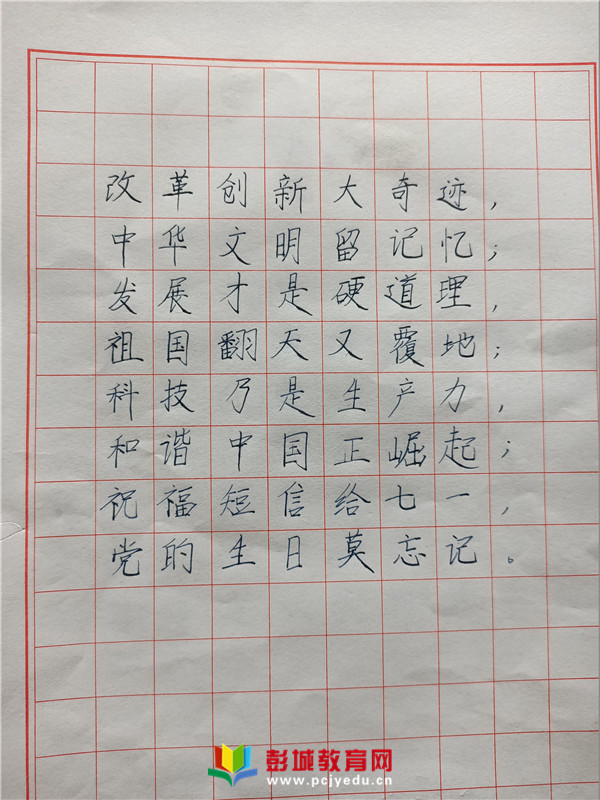 改革创新大奇迹，
中华文明留记忆；
发展才是硬道理，
祖国翻天又覆地；
科技乃是生产力，
和谐中国正崛起；
祝福短信给七一，
党的生日莫忘记。
彭城教育网
www.pcjyedu.cn